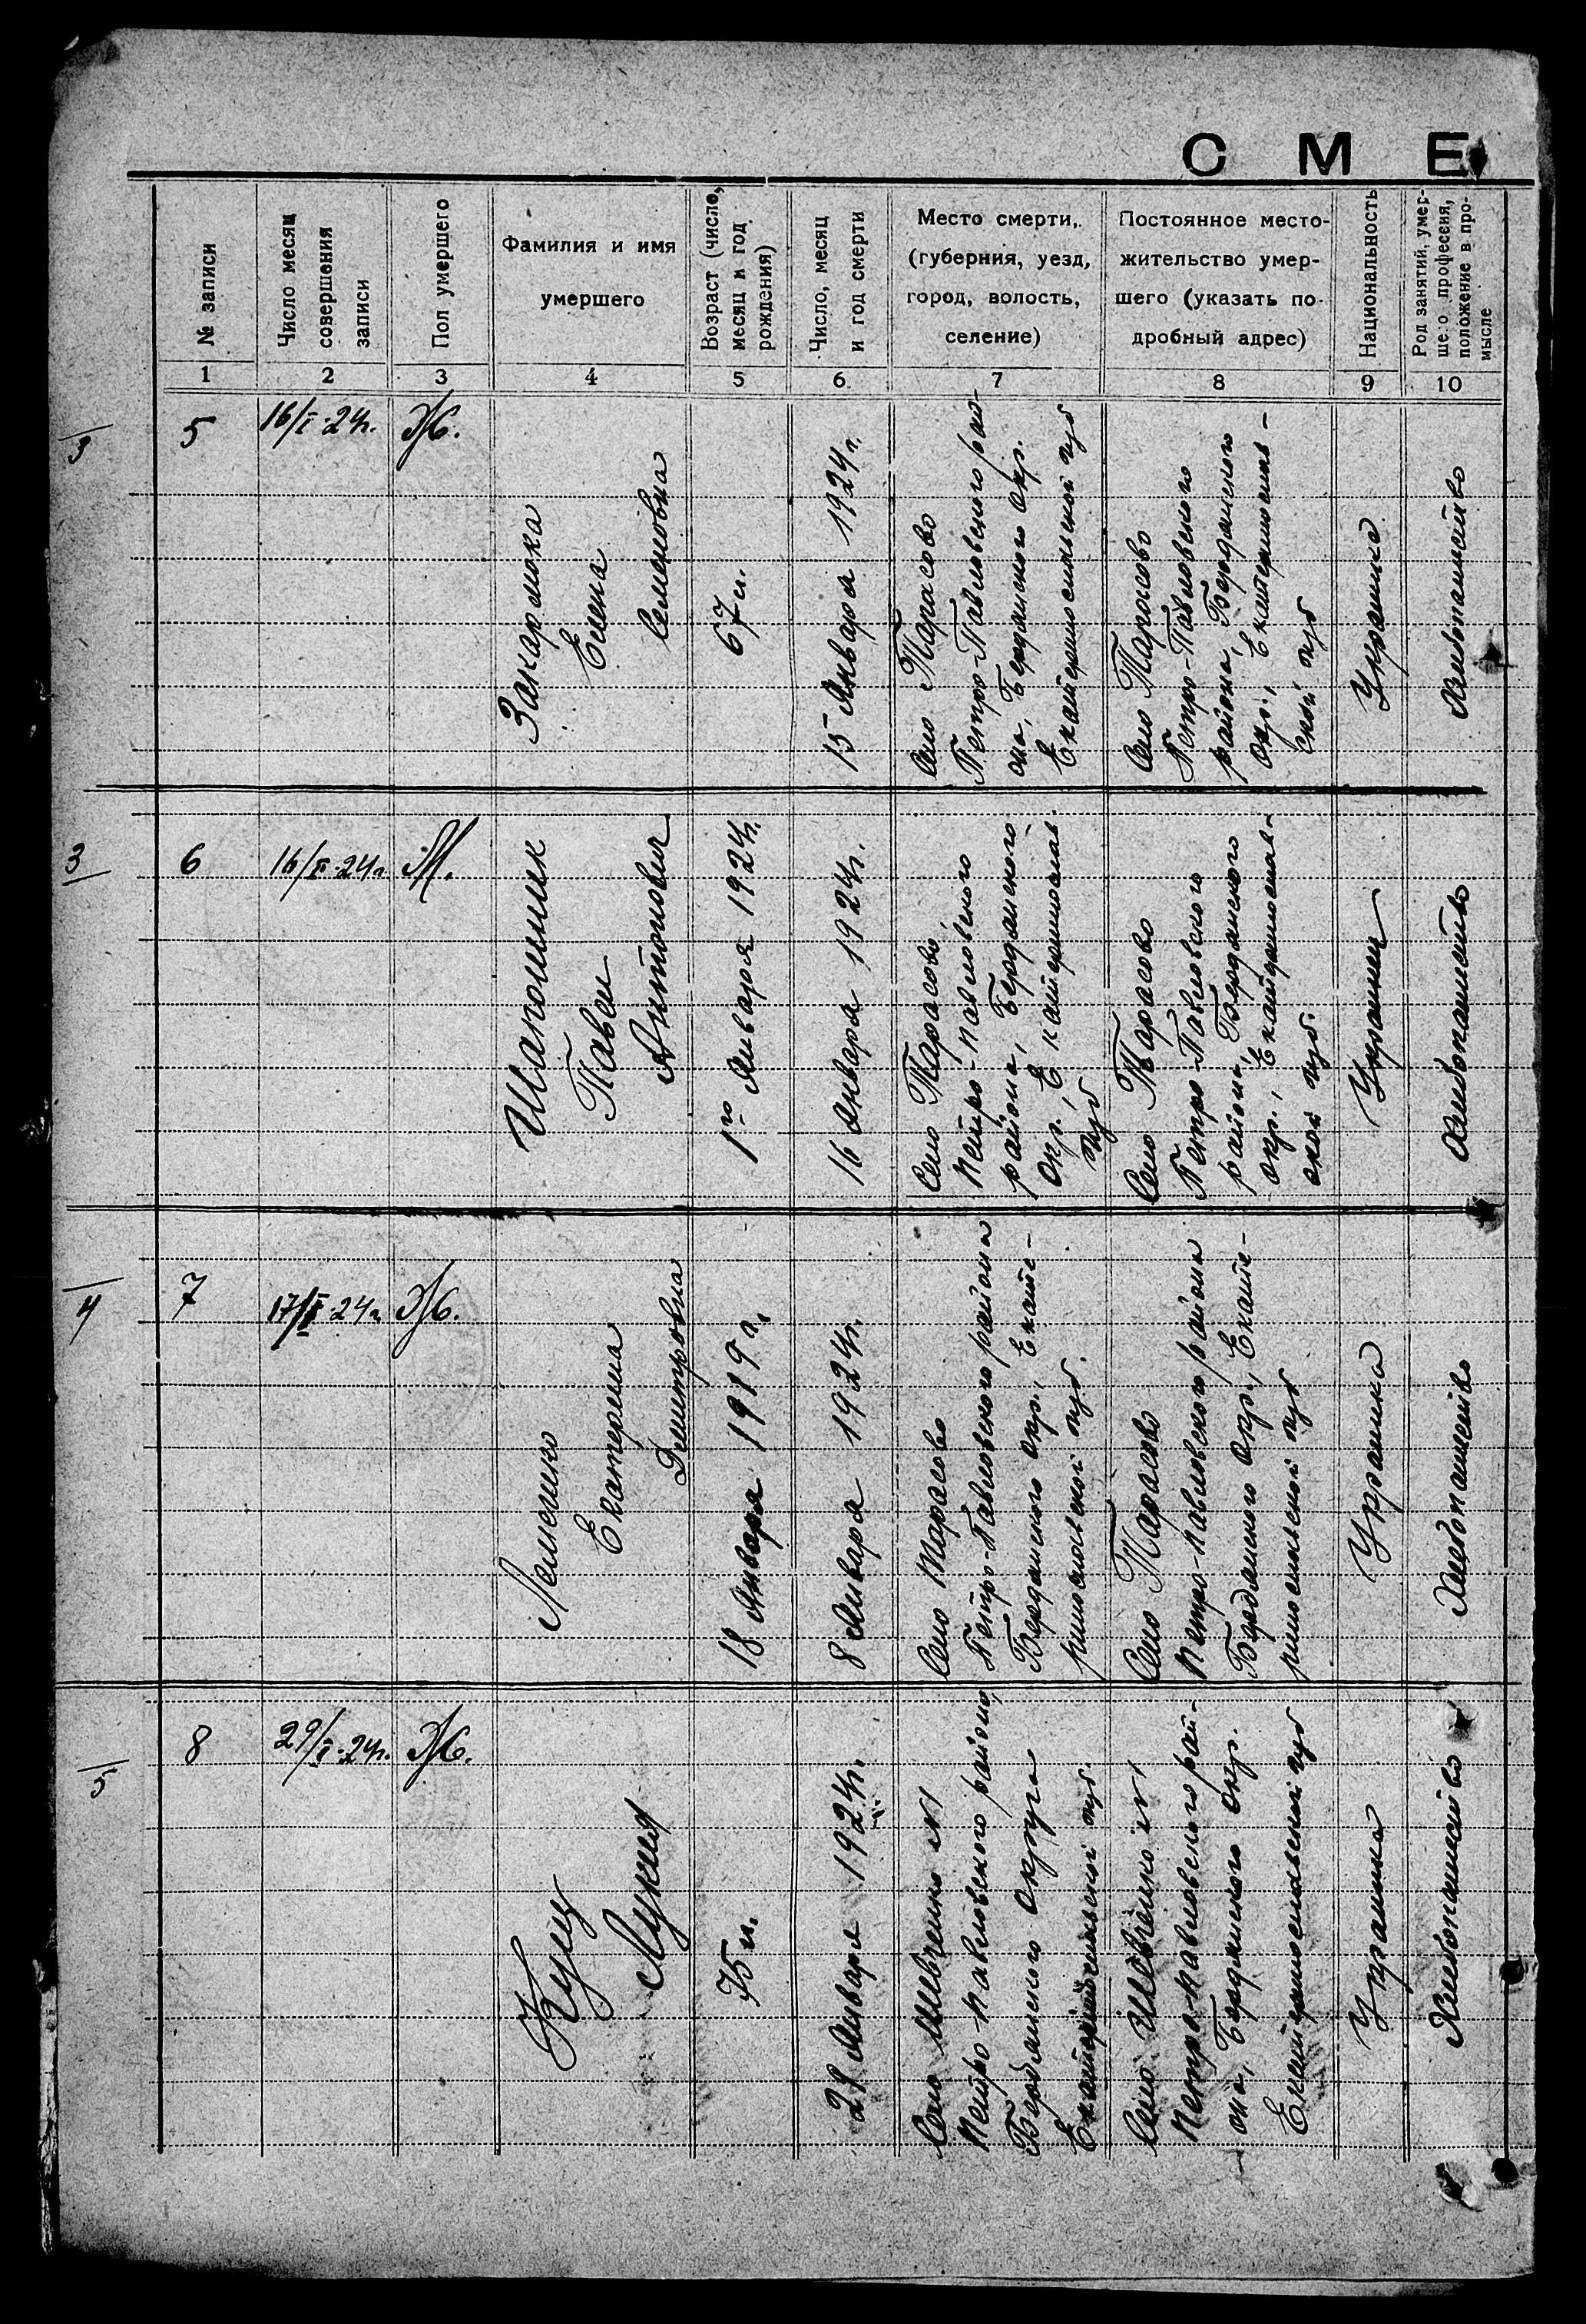 СМЕ
№ записи
Число месяц
совершения
записи
Пол умершего
Фамилия и имя
умершего
Возраст (число,
месяц и год
рождения)
Число, месяц
и год смерти
Место смерти,
(губерния, уезд,
город, волость,
селение)
Постоянное место-
жительство умер-
шего (указать по-
дробный адрес)
Национальность
Род занятий, умер-
шего профессия,
положение в про-
мысле
1 2 3 4 5 6 7 8 9 10
3
5
16/I-24г.
Ж.
Елена
Семеновна
67 л.
15 Января 1924г.
Село Тарасово
Петро-Павловского рай-
она, Бердянского Окр.
Екатеринославской губ
Село Тарасово
Петро-Павловского
района, Бердянского
Окр., Екатеринослав-
ской губ
Украинка
Хлебопашество
3
6
16/I-24г
М.
Шаполник
Павел
Антонович
1го Января 1924г.
16 Января 1924г.
Село Тарасово,
Петро-Павловского
района, Бердянского
Окр., Екатеринослав.
губ
Село Тарасово
Петро-Павловского
района, Бердянского
Окр., Екатеринослав-
ской губ.
Украинец
Хлебопашество
4
7
17/I-24г
Ж.
Лемешко
Екатерина
Дмитровна
18 Января 1919 г.
8 Января 1924г.
Село Тарасово
Петро-Павловского района
Бердянского Окр., Екате-
ринославской губ.
Село Тарасово
Петро-Павловского района
Бердянского Окр., Екате-
ринославской губ
Украинка
Хлебопашество
5
8
29/I-24г.
Ж.
Куц
Лукия
75 л.
28 Января 1924г.
Село Шевченко №1
Петро-Павловского района,
Бердянского Округа
Екатеринославской губ.
Село Шевченко №1
Петро-Павловского рай-
она, Бердянского Окр.
Екатеринославской губ
Украинка
Хлебопашество